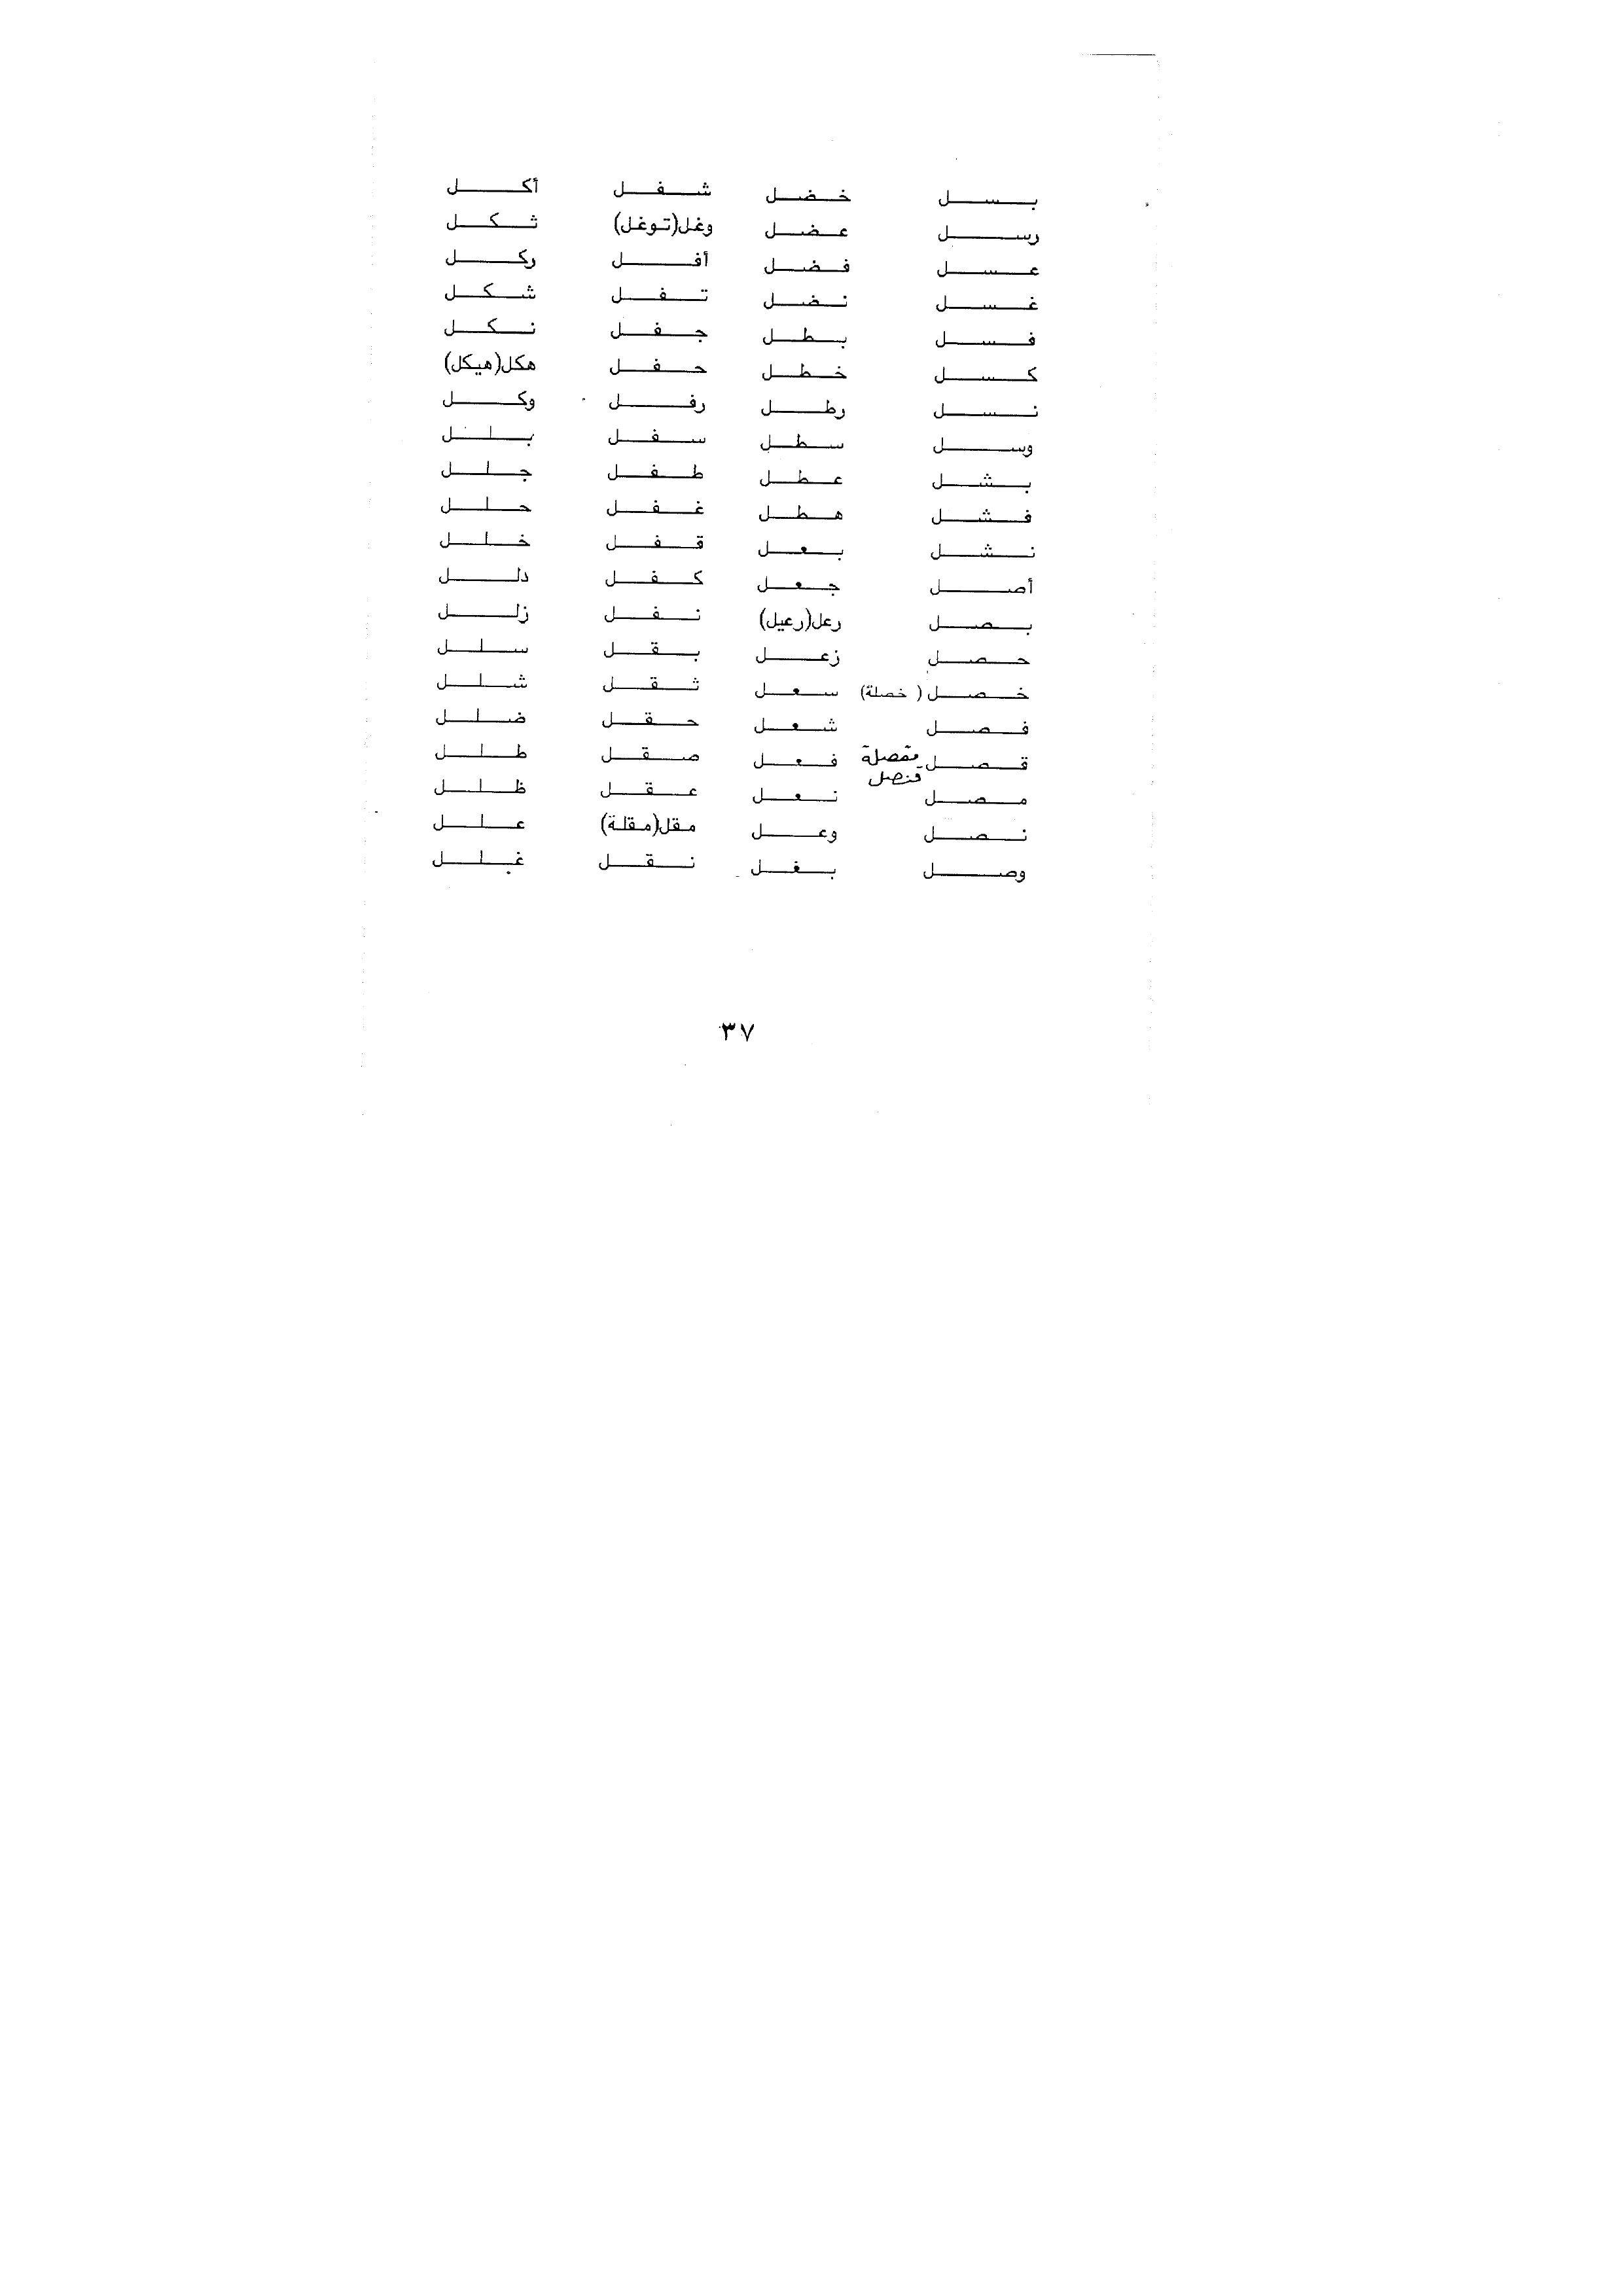 بسل
رسل
عسل
غسل
فسل
كسل
نسل
وسل
بشل
فشل
نشل
أصل
بصل
حصل
خصل (خصلة)
فصل
قصل مقصلة
قنصل
مصل
نصل
وصل
خضل
عضل
فضل
نضل
بطل
خطل
رطل
سطل
عطل
هطل
بعل
جعل
رعل (رعيل)
زعل
سعل
شعل
فعل
نعل
وعل
بغل
شغل
وغل (توغل)
أفل
تفل
جفل
حفل
رفل
سفل
طفل
غفل
قفل
كفل
نفل
بقل
ثقل
حقل
صقل
عقل
مقل (مقلة)
نقل
أكل
ثكل
ركل
شكل
نكل
هكل (هيكل)
وكل
بلل
جلل
حلل
خلل
دلل
زلل
سلل
شلل
ضلل
طلل
ظلل
علل
غلل
٣٧